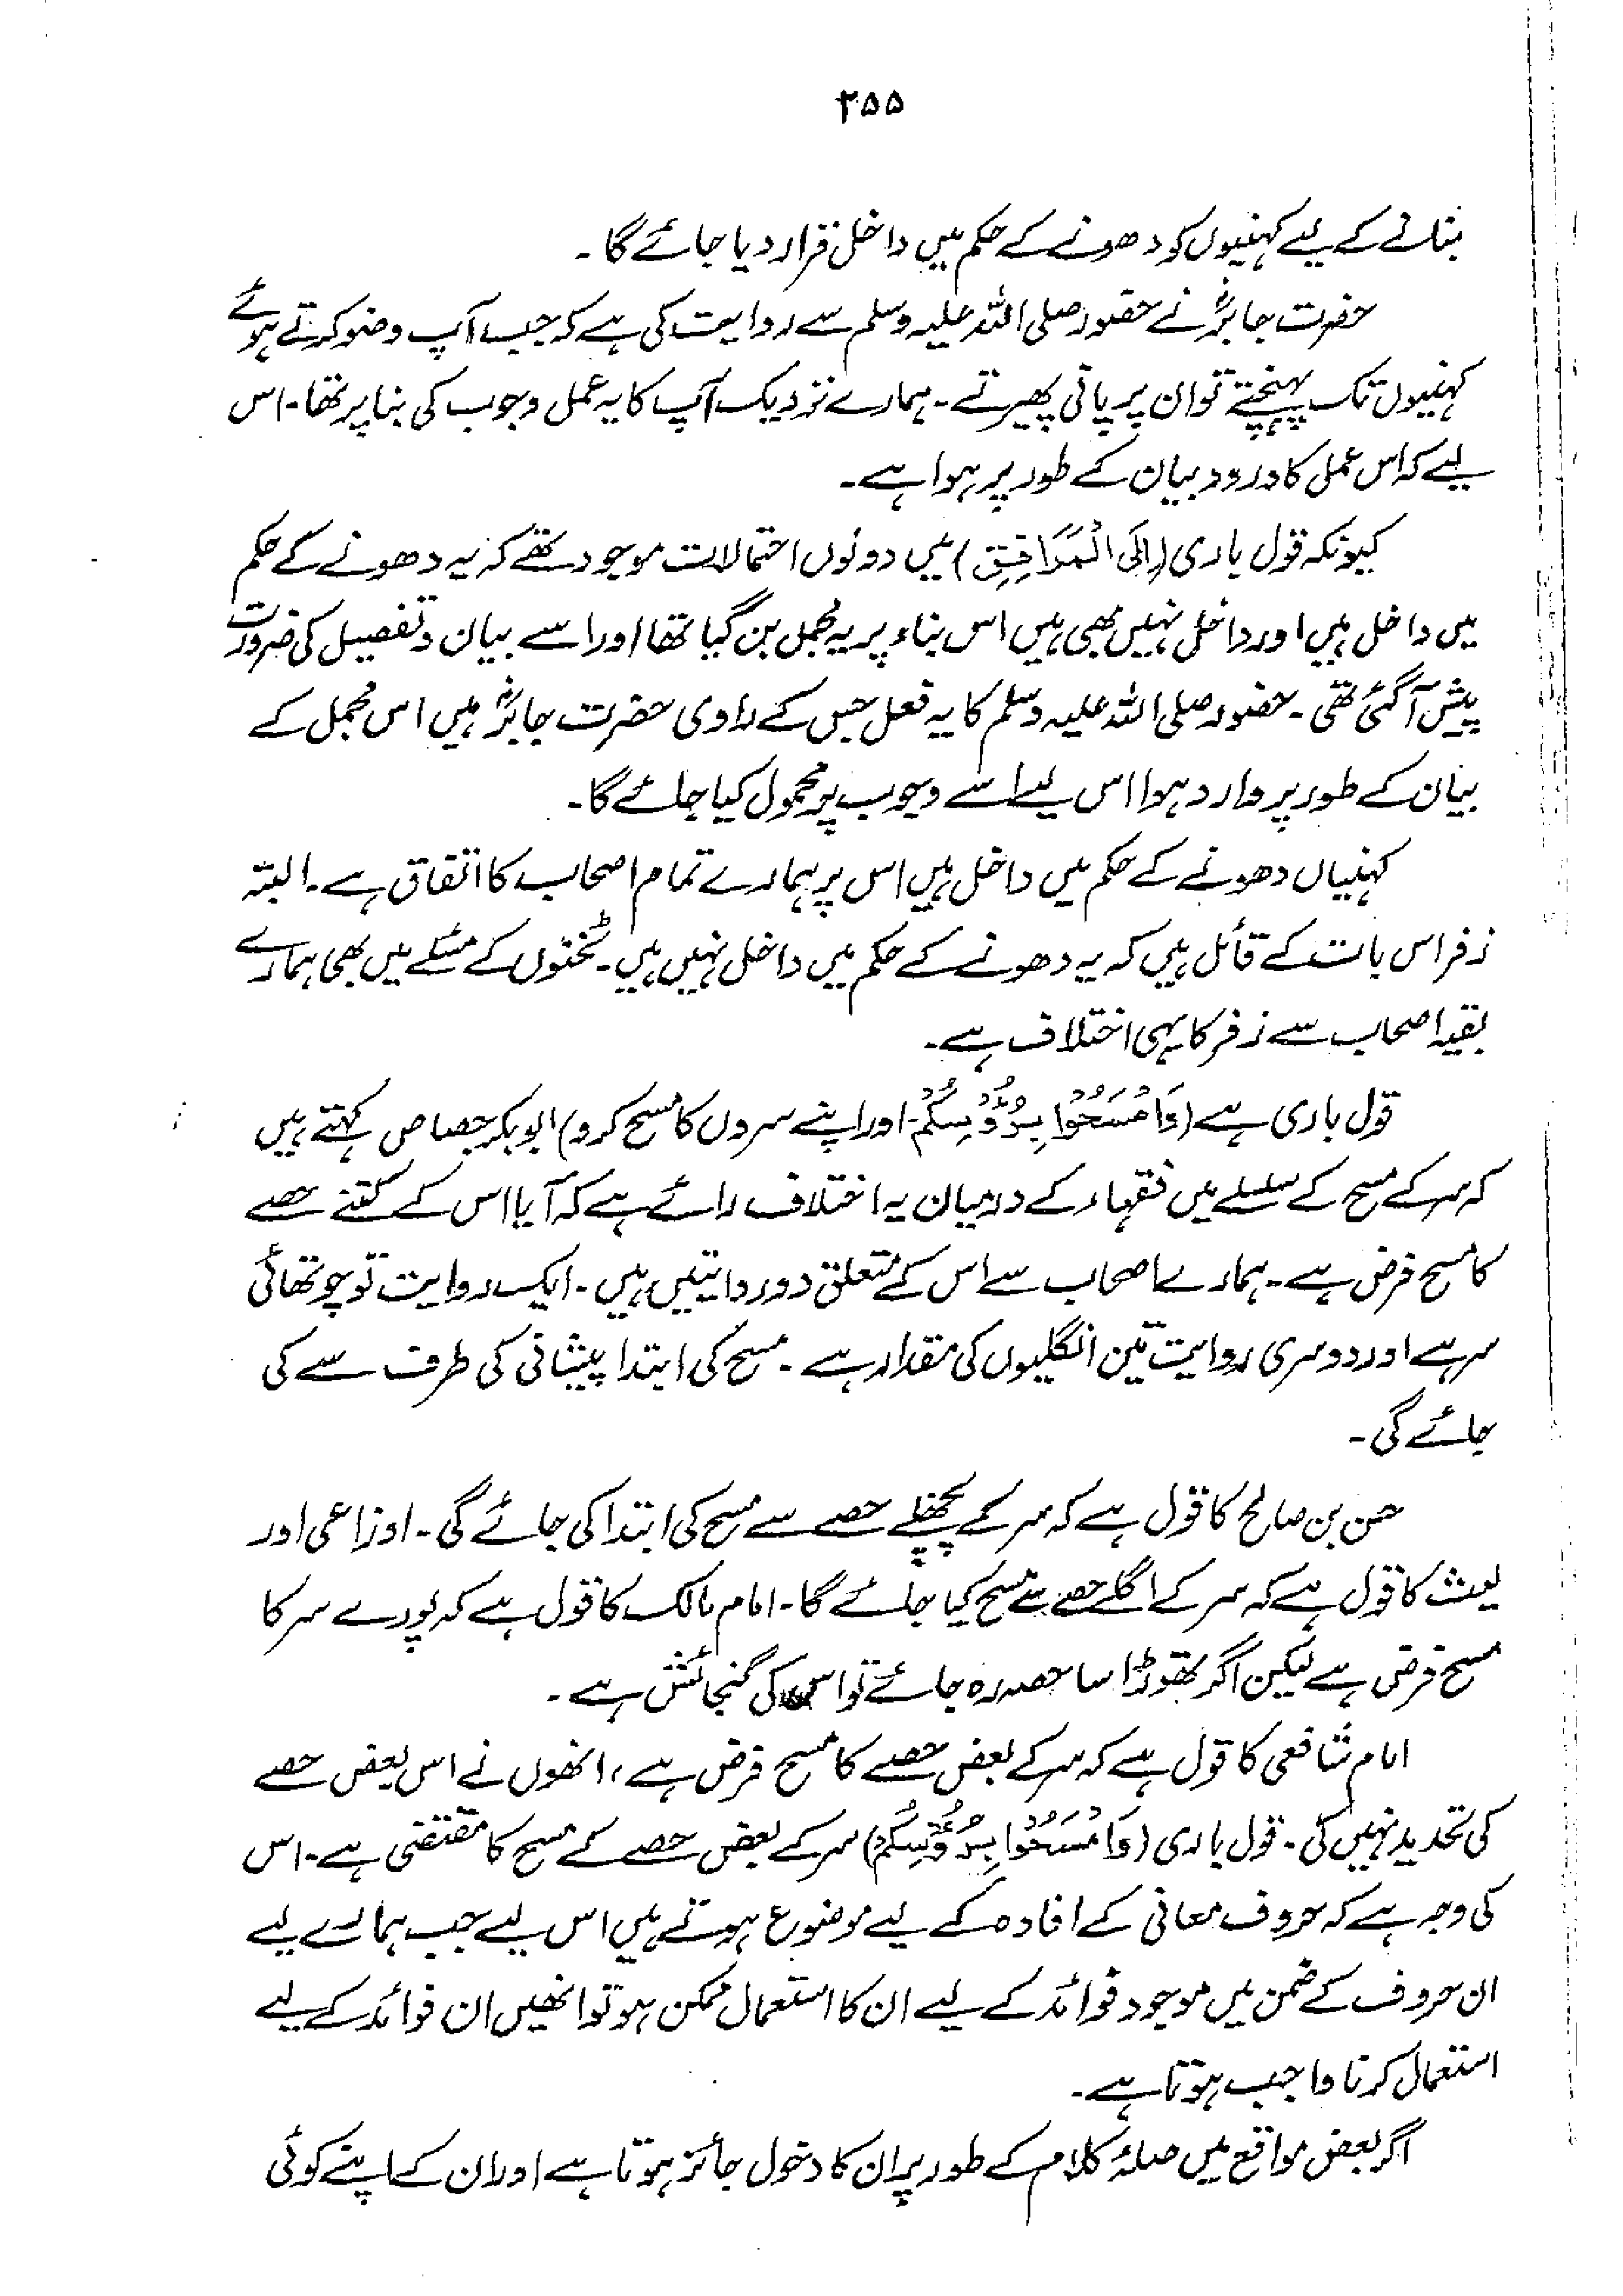 ۲۵۵
بنانے کے لیے کہنیوں کو دھونے کے حکم میں داخل قرار دیا جائے گا۔
حضرت جابرؓ نے حضور صلی اللہ علیہ وسلم سے روایت کی ہے کہ جب آپ وضو کرتے ہوئے
کہنیوں تک پہنچتے تو ان پر پانی پھیرتے۔ ہمارے نزدیک آپ کا یہ عمل وجوب کی بنا پر تھا۔ اس
لیے کہ اس عمل کا ورود بیان کے طور پر ہوا ہے۔
کیونکہ قول باری (اِلَی الْمَرَافِقِ) میں دونوں احتمالات موجود تھے کہ یہ دھونے کے حکم
میں داخل ہیں اور داخل نہیں بھی ہیں اس بناء پر یہ مجمل بن گیا تھا اور اسے بیان و تفصیل کی ضرورت
پیش آگئی تھی۔ حضور صلی اللہ علیہ وسلم کا یہ فعل جس کے راوی حضرت جابرؓ ہیں اس مجمل کے
بیان کے طور پر وارد ہوا اس لیے اسے وجوب پر محمول کیا جائے گا۔
کہنیاں دھونے کے حکم میں داخل ہیں اس پر ہمارے تمام اصحاب کا اتفاق ہے۔ البتہ
زفر اس بات کے قائل ہیں کہ یہ دھونے کے حکم میں داخل نہیں ہیں۔ ٹخنوں کے مسئلے میں بھی ہمارے
بقیہ اصحاب سے زفر کا یہی اختلاف ہے۔
قول باری ہے (وَامْسَحُوْا بِرُؤُسِکُمْ۔ اور اپنے سروں کا مسح کرو) ابوبکر جصاص کہتے ہیں
کہ سر کے مسح کے سلسلے میں فقہاء کے درمیان یہ اختلاف رائے ہے کہ آیا اس کے کتنے حصے
کا مسح فرض ہے۔ ہمارے اصحاب سے اس کے متعلق دو روایتیں ہیں۔ ایک روایت تو چوتھائی
سر ہے اور دوسری روایت تین انگلیوں کی مقدار ہے۔ مسح کی ابتدا پیشانی کی طرف سے کی
جائے گی۔
حسن بن صالح کا قول ہے کہ سر کے پچھلے حصے سے مسح کی ابتدا کی جائے گی۔ اوزاعی اور
لیث کا قول ہے کہ سر کے اگلے حصے سے مسح کیا جائے گا۔ امام مالک کا قول ہے کہ پورے سر کا
مسح فرض ہے لیکن اگر تھوڑا سا حصہ رہ جائے تو اس کی گنجائش ہے۔
امام شافعی کا قول ہے کہ سر کے بعض حصے کا مسح فرض ہے، انھوں نے اس بعض حصے
کی تحدید نہیں کی۔ قول باری (وَامْسَحُوْا بِرُؤُسِکُمْ) سر کے بعض حصے کے مسح کا مقتضی ہے۔ اس
کی وجہ ہے کہ حروف معانی کے افادہ کے لیے موضوع ہوتے ہیں اس لیے جب ہمارے لیے
ان حروف کے ضمن میں موجود فوائد کے لیے ان کا استعمال ممکن ہو تو انھیں ان فوائد کے لیے
استعمال کرنا واجب ہوتا ہے۔
اگر بعض مواقع میں صلۂ کلام کے طور پر ان کا دخول جائز ہوتا ہے اور ان کے اپنے کوئی